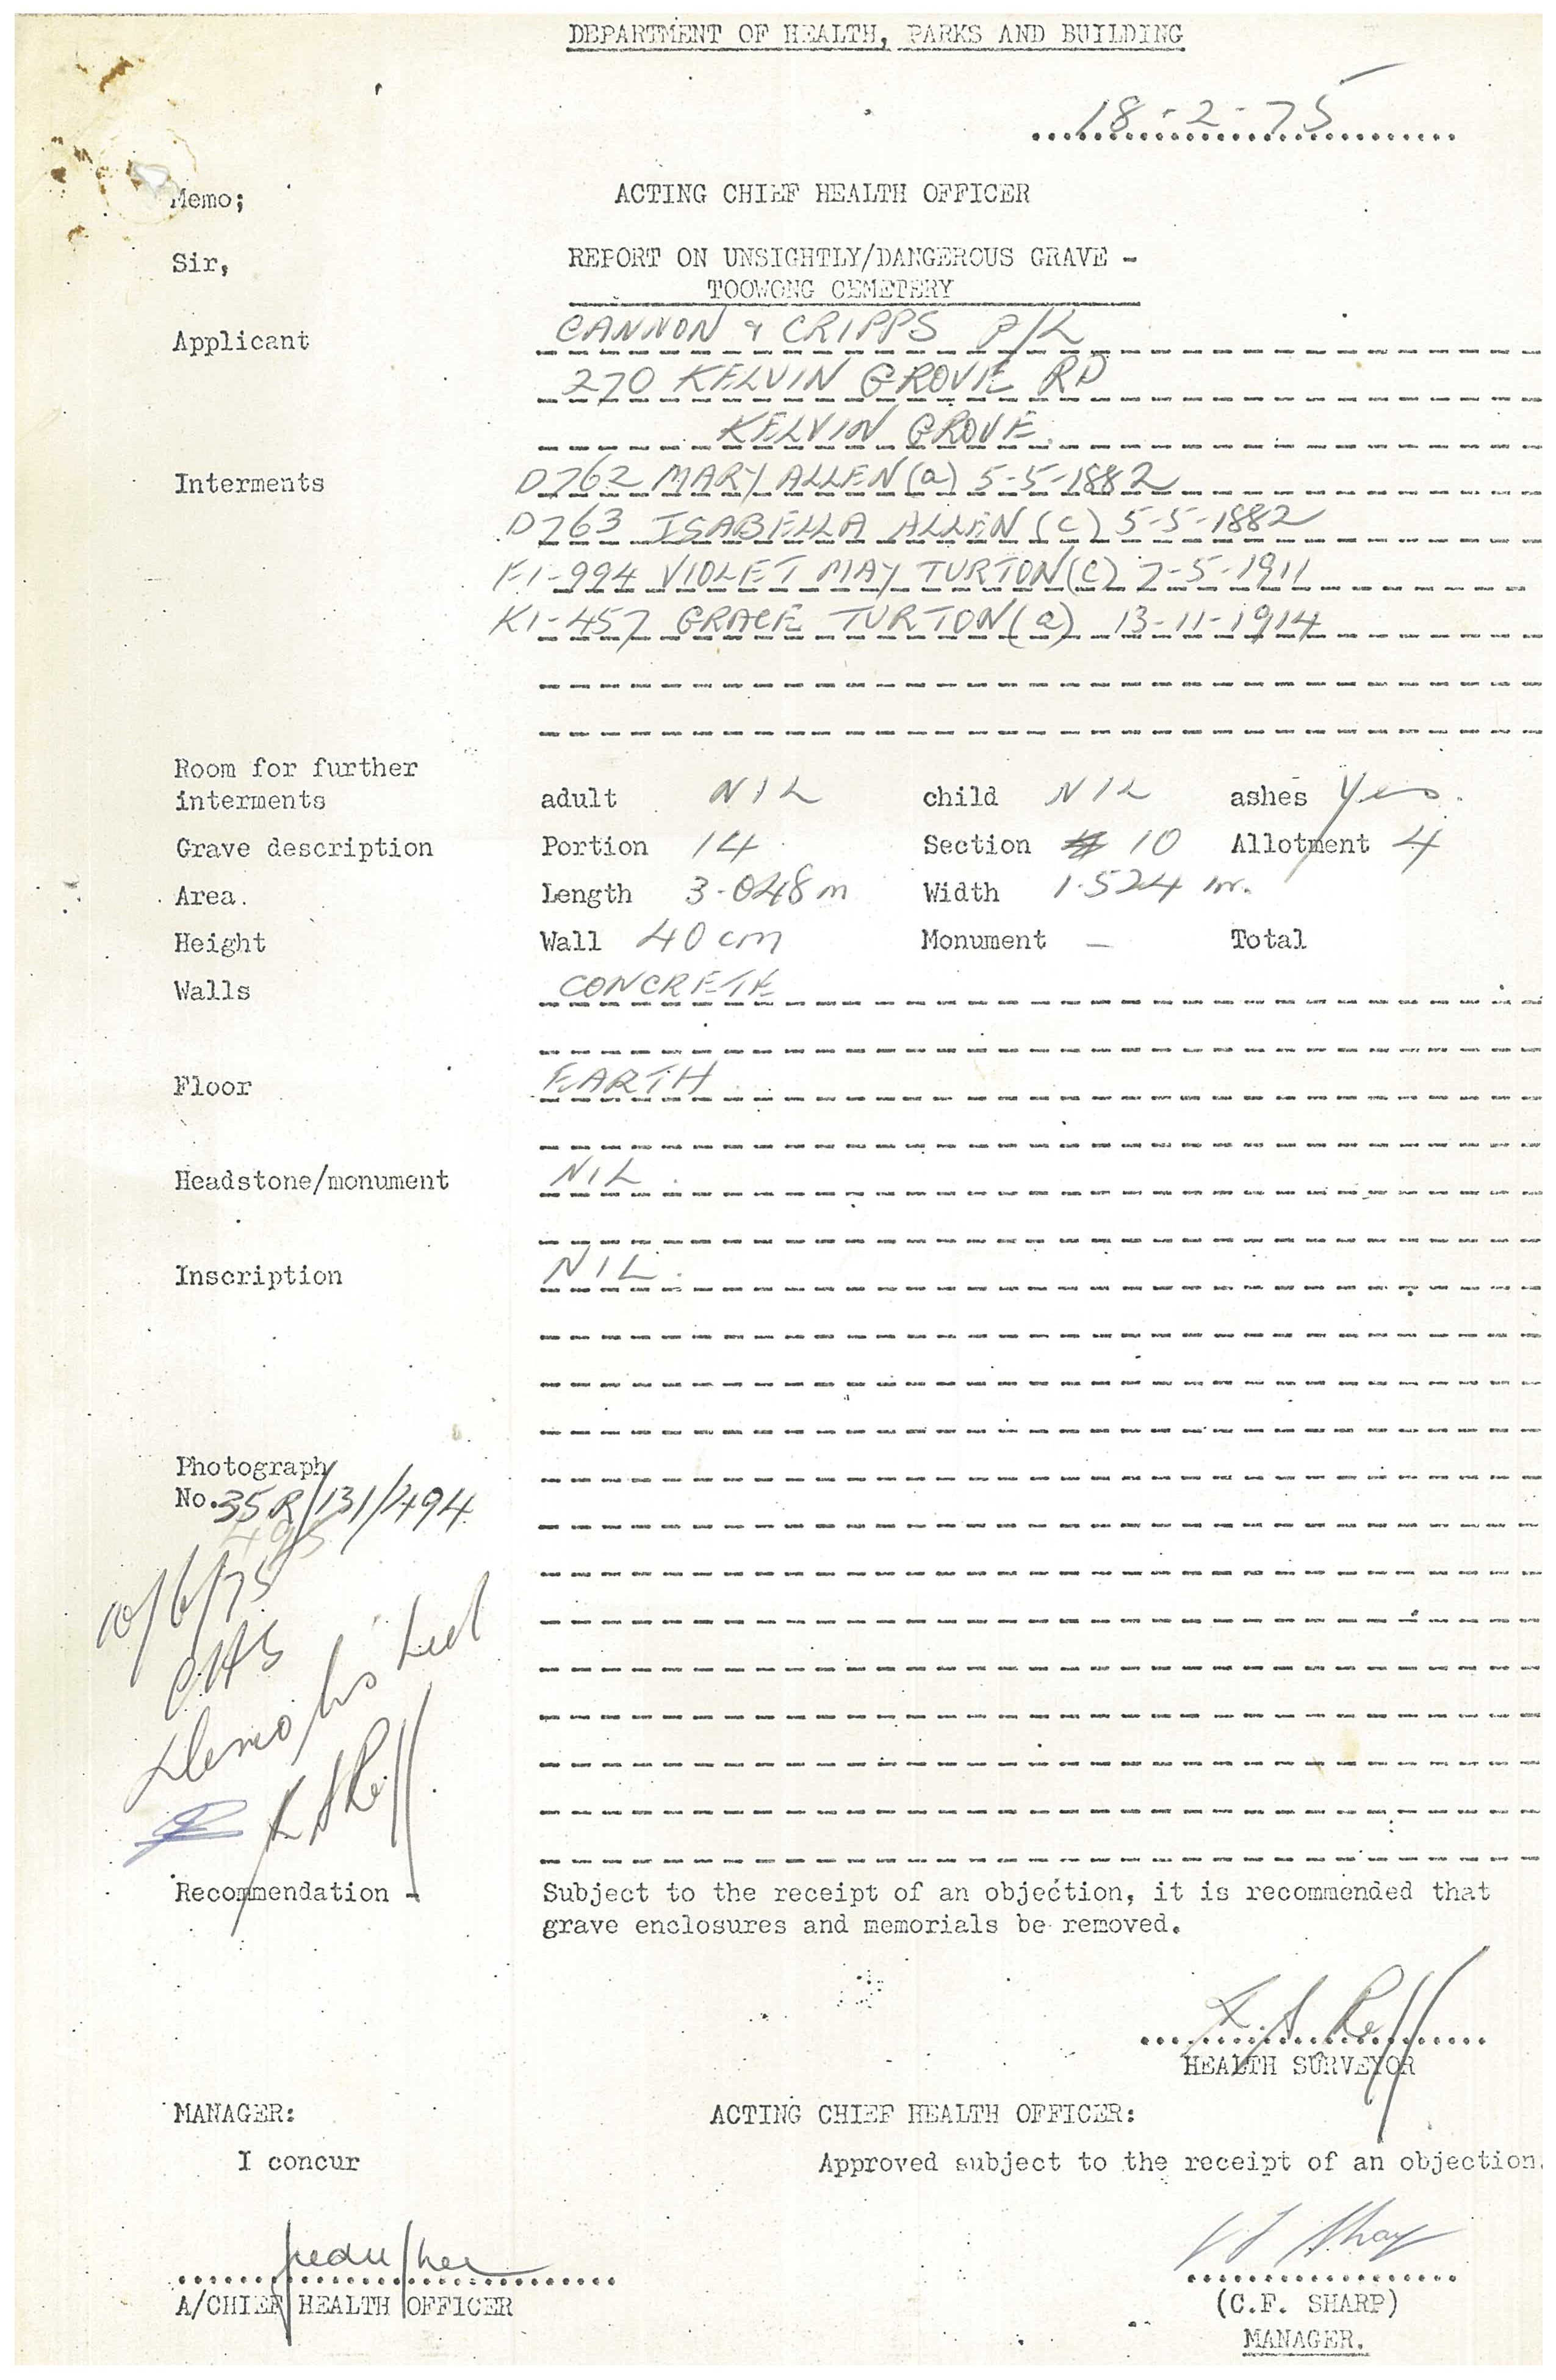 DEPARTMENT OF HEALTH, PARKS AND BUILDING
18-2-75
Memo; ACTING CHIEF HEALTH OFFICER
Sir, REPORT ON UNSIGHTLY/DANGEROUS GRAVE -
TOOWONG CEMETERY
Applicant CANNON & CRIPPS P/L
270 KELVIN GROVE RD
KELVIN GROVE.
Interments D762 MARY ALLEN (a) 5-5-1882
D763 ISABELLA ALLEN (c) 5-5-1882
F1-994 VIOLET MAY TURTON (C) 7-5-1911
K1-457 GRACE TURTON (a) 13-11-1914
Room for further
interments adult NIL child NIL ashes Yes.
Grave description Portion 14 Section 10 Allotment 4
Area. Length 3.048m Width 1.524 m.
Height Wall 40cm Monument – Total
Walls CONCRETE
Floor EARTH
Headstone/monument NIL.
Inscription NIL.
Photograph
No. 35R/131/494
495
10/6/75
CHS
Demolished
Recommendation - Subject to the receipt of an objection, it is recommended that
grave enclosures and memorials be removed.
HEALTH SURVEYOR
MANAGER: ACTING CHIEF HEALTH OFFICER:
I concur Approved subject to the receipt of an objection.
A/CHIEF HEALTH OFFICER (C.F. SHARP)
MANAGER.